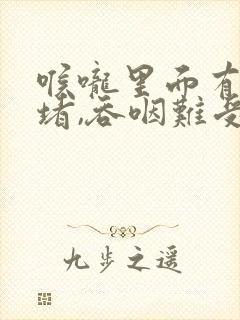 喉嚨里而有
堵,吞咽難受
九步之遥